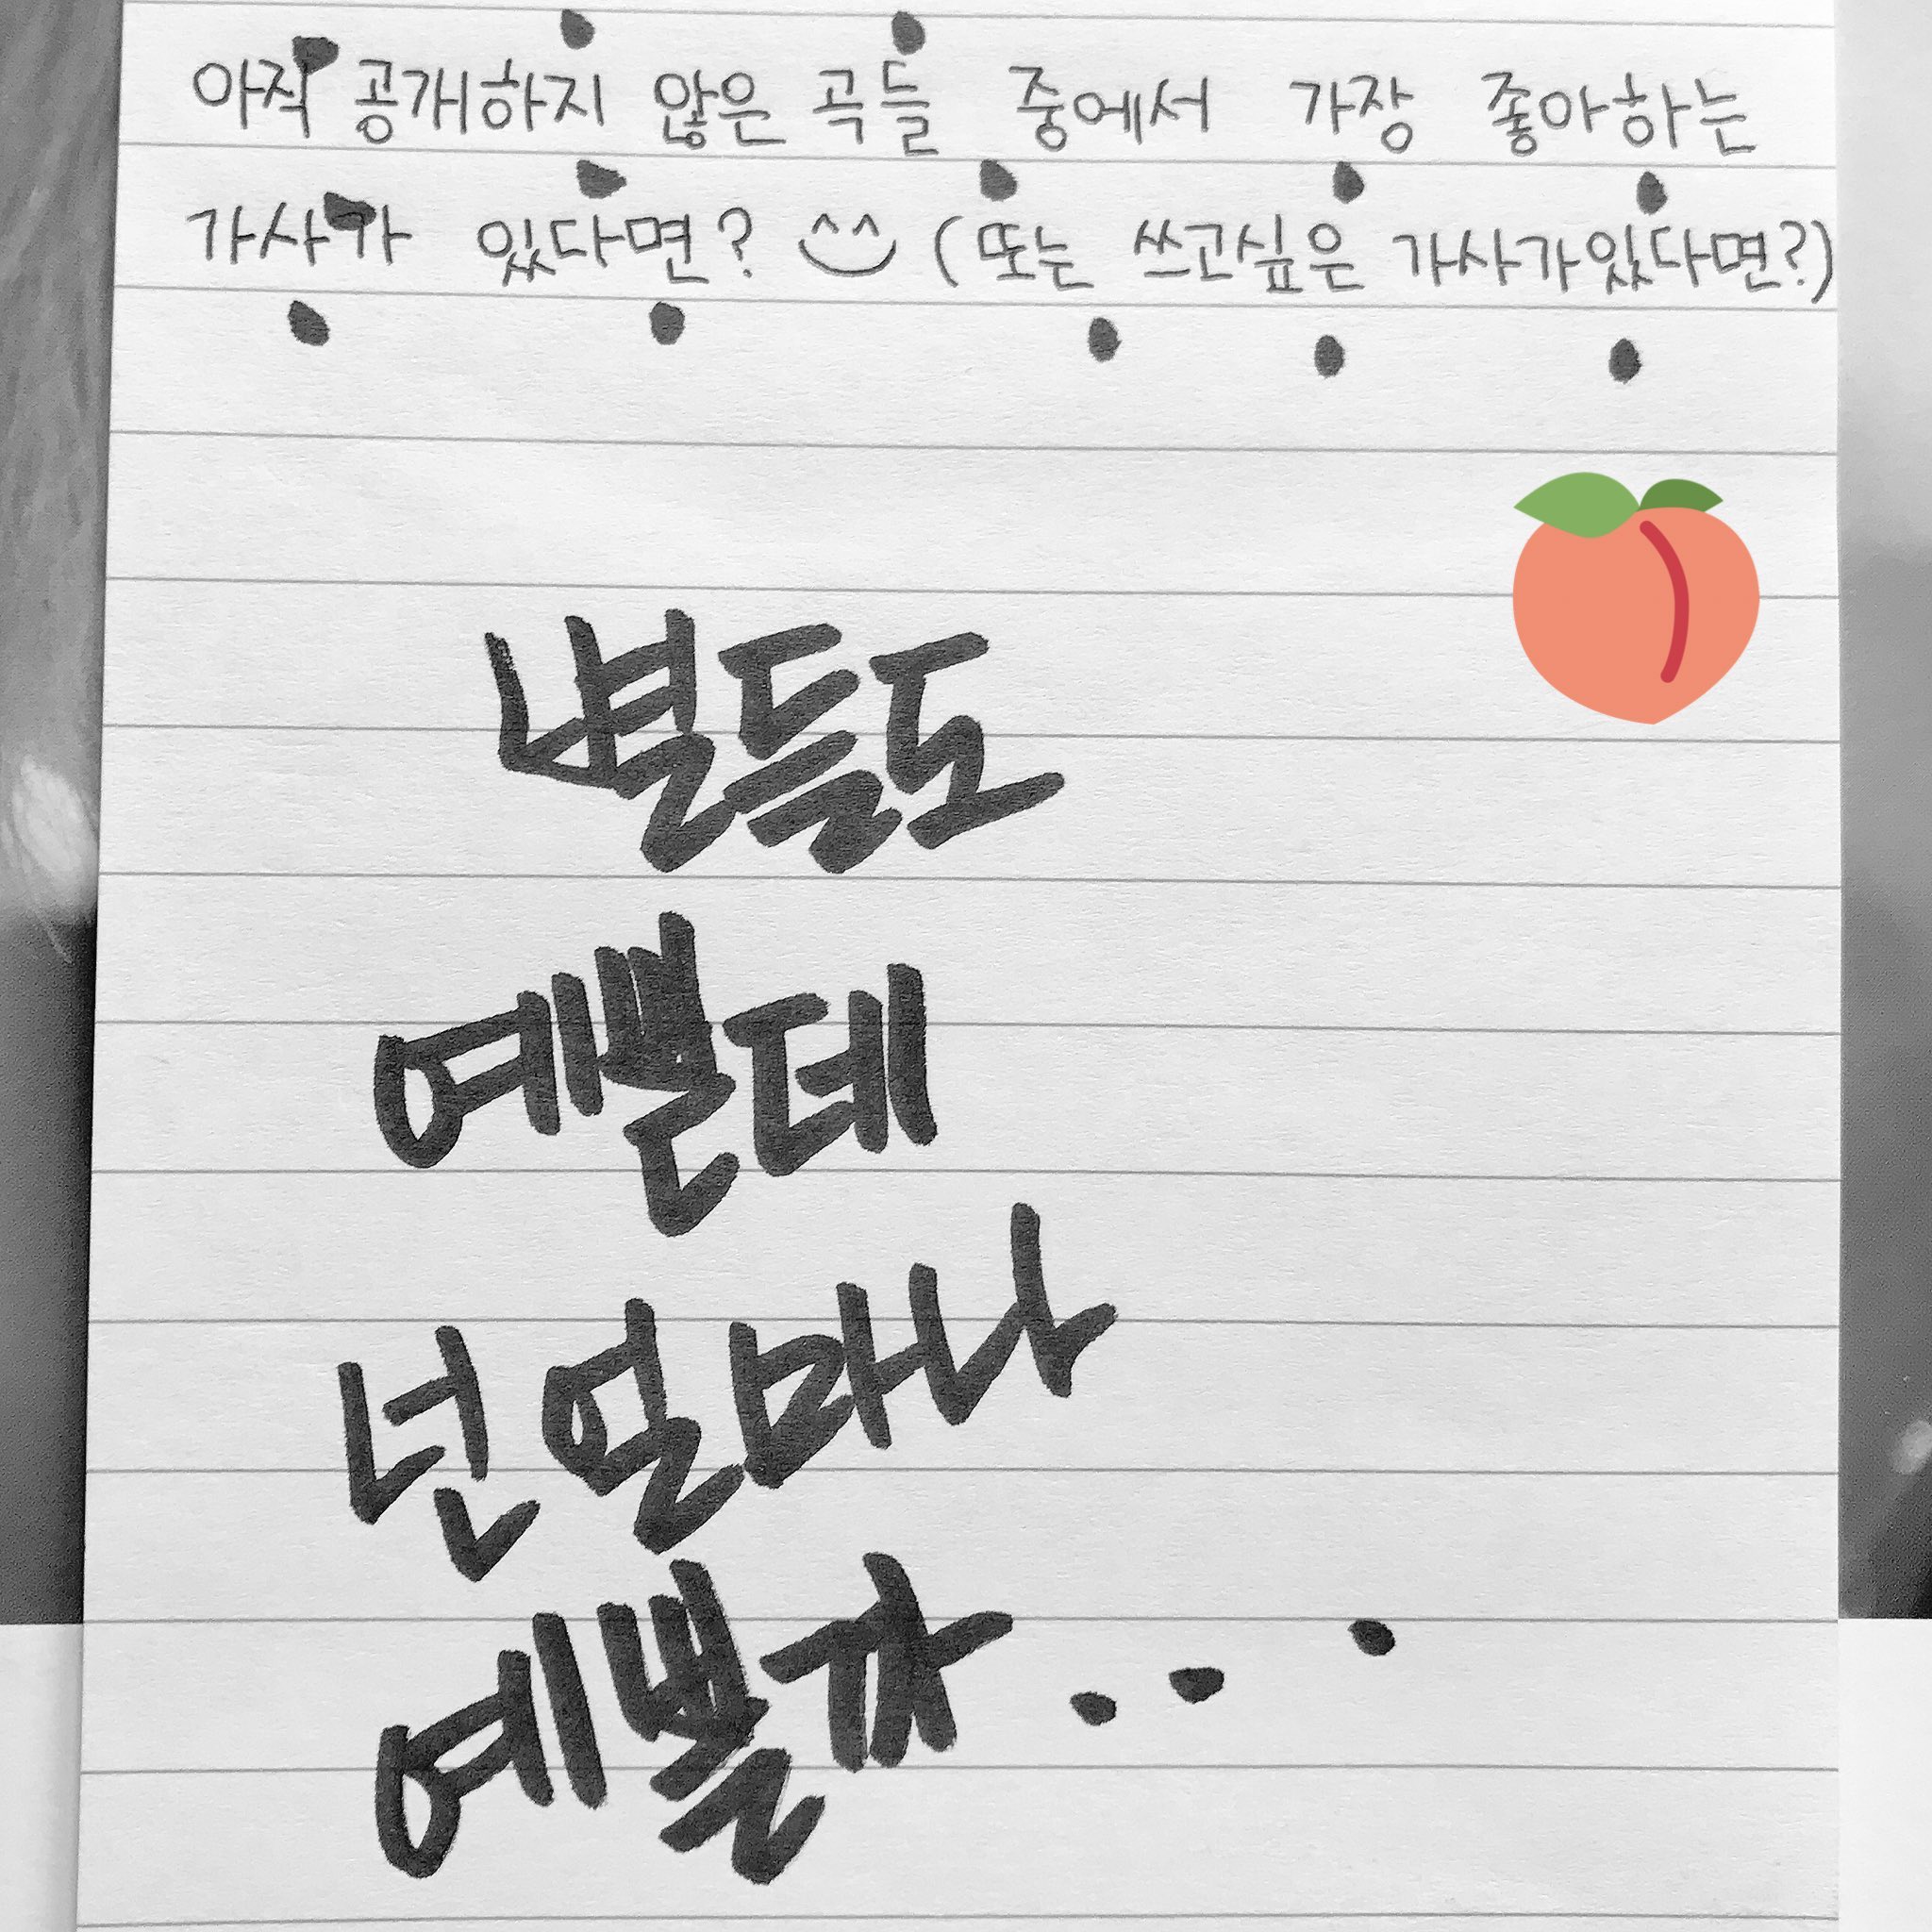 아직 공개하지 않은 곡들 중에서 가장 좋아하는
가사가 있다면? ^^ (또는 쓰고싶은 가사가있다면?)
별들도
예쁜데
넌 얼마나
예쁠까...